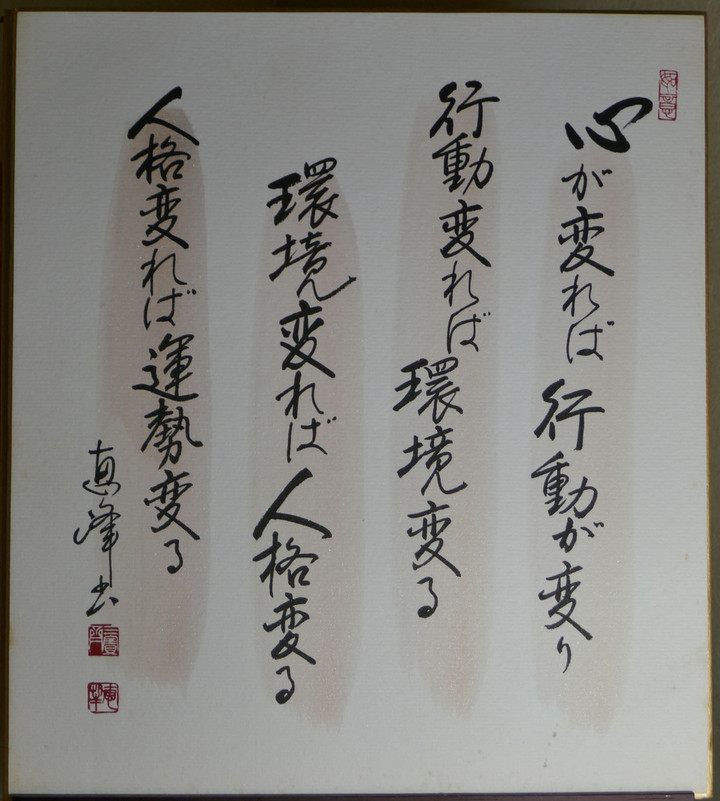 心が変れば行動が変り
行動変れば環境変る
環境変れば人格変る
人格変れば運勢変る
恵峰書